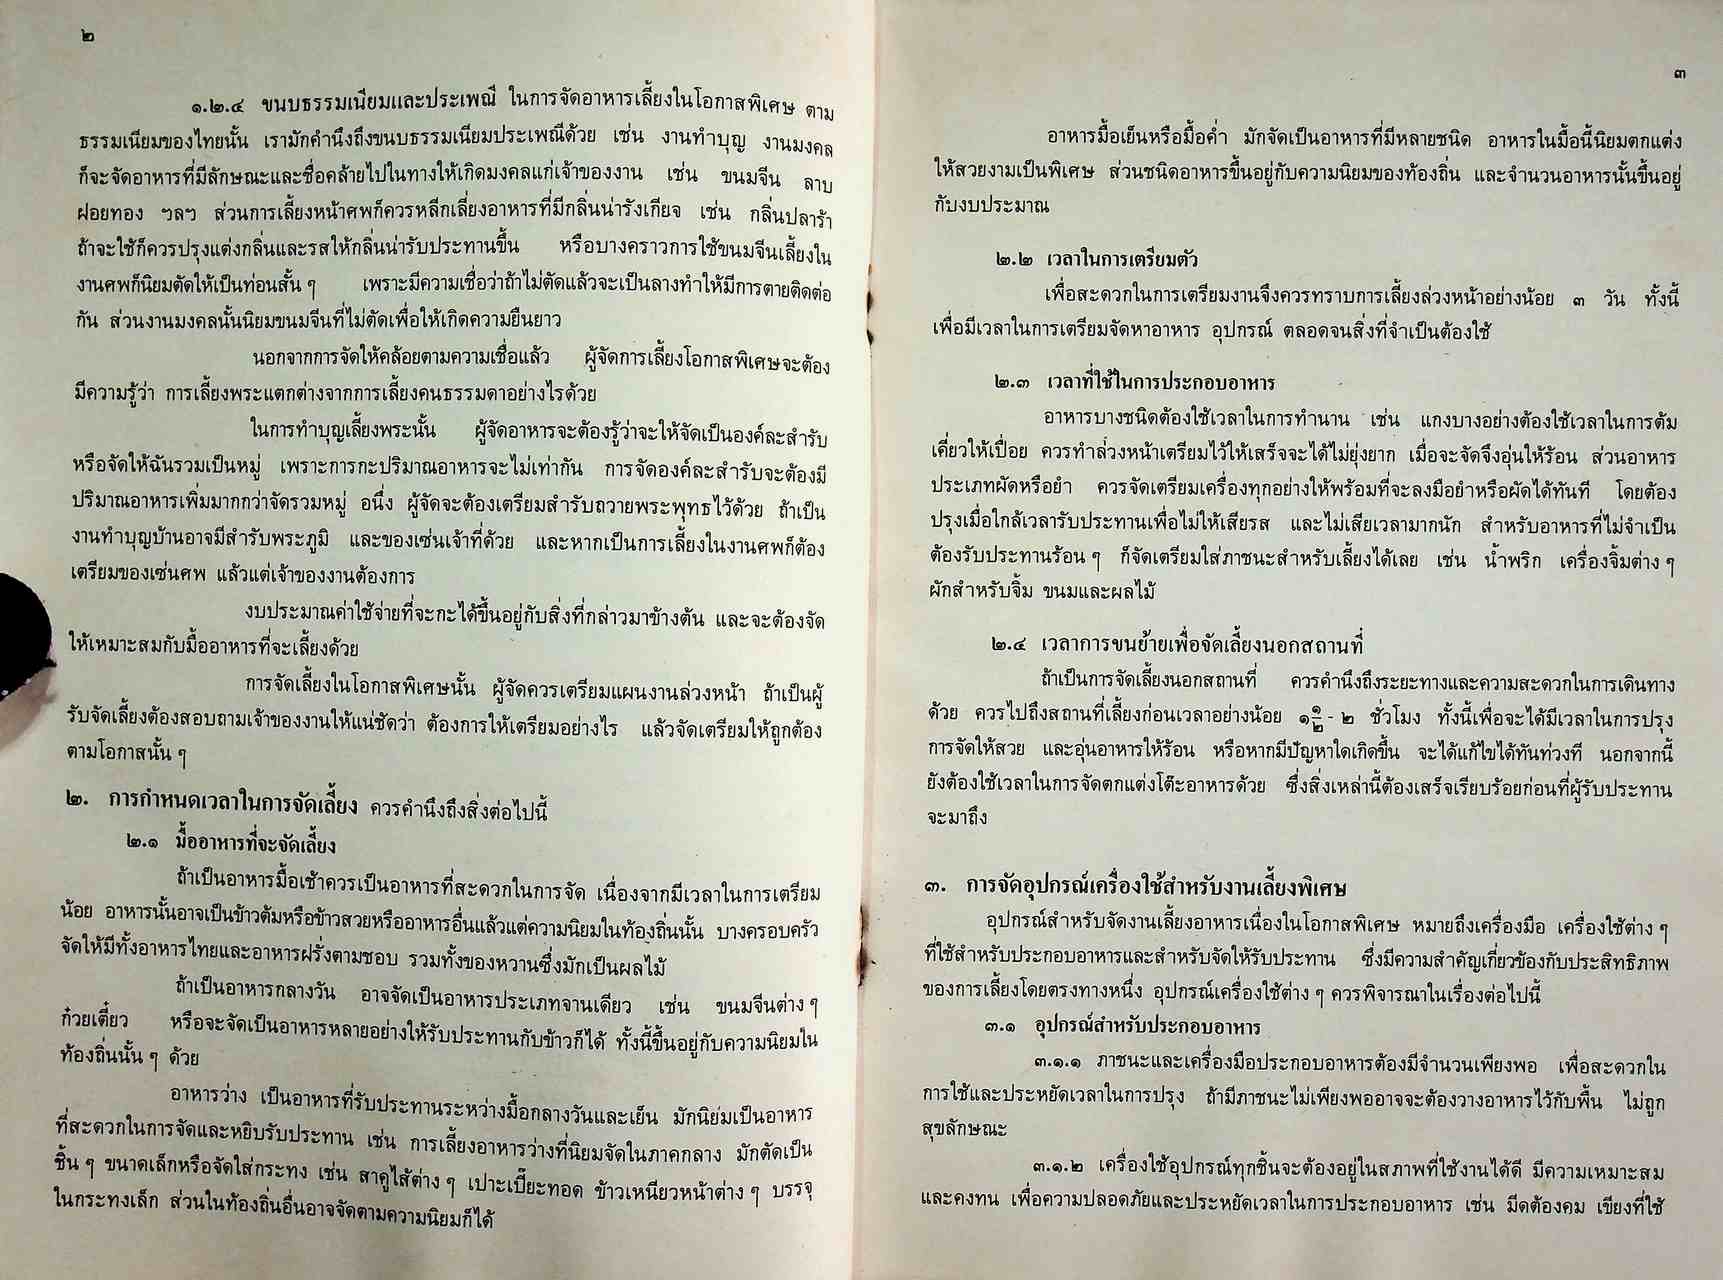 ๒
๑.๒.๔ ขนบธรรมเนียมและประเพณี ในการจัดอาหารเลี้ยงในโอกาสพิเศษ ตาม
ธรรมเนียมของไทยนั้น เรามักคำนึงถึงขนบธรรมเนียมประเพณีด้วย เช่น งานทำบุญ งานมงคล
ก็จะจัดอาหารที่มีลักษณะและชื่อคล้ายไปในทางให้เกิดมงคลแก่เจ้าของงาน เช่น ขนมจีน ลาบ
ฝอยทอง ฯลฯ ส่วนการเลี้ยงหน้าศพก็ควรหลีกเลี่ยงอาหารที่มีกลิ่นน่ารังเกียจ เช่น กลิ่นปลาร้า
ถ้าจะใช้ก็ควรปรุงแต่งกลิ่นและรสให้กลิ่นน่ารับประทานขึ้น หรือบางคราวการใช้ขนมจีนเลี้ยงใน
งานศพก็นิยมตัดให้เป็นท่อนสั้น ๆ เพราะมีความเชื่อว่าถ้าไม่ตัดแล้วจะเป็นลางทำให้มีการตายติดต่อ
กัน ส่วนงานมงคลนั้นนิยมขนมจีนที่ไม่ตัดเพื่อให้เกิดความยืนยาว
นอกจากการจัดให้คล้อยตามความเชื่อแล้ว ผู้จัดการเลี้ยงโอกาสพิเศษจะต้อง
มีความรู้ว่า การเลี้ยงพระแตกต่างจากการเลี้ยงคนธรรมดาอย่างไรด้วย
ในการทำบุญเลี้ยงพระนั้น ผู้จัดอาหารจะต้องรู้ว่าจะให้จัดเป็นองค์ละสำรับ
หรือจัดให้ฉันรวมเป็นหมู่ เพราะการกะปริมาณอาหารจะไม่เท่ากัน การจัดองค์ละสำรับจะต้องมี
ปริมาณอาหารเพิ่มมากกว่าจัดรวมหมู่ อนึ่ง ผู้จัดจะต้องเตรียมสำรับถวายพระพุทธไว้ด้วย ถ้าเป็น
งานทำบุญบ้านอาจมีสำรับพระภูมิ และของเซ่นเจ้าที่ด้วย และหากเป็นการเลี้ยงในงานศพก็ต้อง
เตรียมของเซ่นศพ แล้วแต่เจ้าของงานต้องการ
งบประมาณค่าใช้จ่ายที่จะกะได้ขึ้นอยู่กับสิ่งที่กล่าวมาข้างต้น และจะต้องจัด
ให้เหมาะสมกับมื้ออาหารที่จะเลี้ยงด้วย
การจัดเลี้ยงในโอกาสพิเศษนั้น ผู้จัดควรเตรียมแผนงานล่วงหน้า ถ้าเป็นผู้
รับจัดเลี้ยงต้องสอบถามเจ้าของงานให้แน่ชัดว่า ต้องการให้เตรียมอย่างไร แล้วจัดเตรียมให้ถูกต้อง
ตามโอกาสนั้น ๆ
๒. การกำหนดเวลาในการจัดเลี้ยง ควรคำนึงถึงสิ่งต่อไปนี้
๒.๑ มื้ออาหารที่จะจัดเลี้ยง
ถ้าเป็นอาหารมื้อเช้าควรเป็นอาหารที่สะดวกในการจัด เนื่องจากมีเวลาในการเตรียม
น้อย อาหารนั้นอาจเป็นข้าวต้มหรือข้าวสวยหรืออาหารอื่นแล้วแต่ความนิยมในท้องถิ่นนั้น บางครอบครัว
จัดให้มีทั้งอาหารไทยและอาหารฝรั่งตามชอบ รวมทั้งของหวานซึ่งมักเป็นผลไม้
ถ้าเป็นอาหารกลางวัน อาจจัดเป็นอาหารประเภทจานเดียว เช่น ขนมจีนต่าง ๆ
ก๋วยเตี๋ยว หรือจะจัดเป็นอาหารหลายอย่างให้รับประทานกับข้าวก็ได้ ทั้งนี้ขึ้นอยู่กับความนิยมใน
ท้องถิ่นนั้น ๆ ด้วย
อาหารว่าง เป็นอาหารที่รับประทานระหว่างมื้อกลางวันและเย็น มักนิยมเป็นอาหาร
ที่สะดวกในการจัดและหยิบรับประทาน เช่น การเลี้ยงอาหารว่างที่นิยมจัดในภาคกลาง มักตัดเป็น
ชิ้น ๆ ขนาดเล็กหรือจัดใส่กระทง เช่น สาคูไส้ต่าง ๆ เปาะเปี๊ยะทอด ข้าวเหนียวหน้าต่าง ๆ บรรจุ
ในกระทงเล็ก ส่วนในท้องถิ่นอื่นอาจจัดตามความนิยมก็ได้
๓
อาหารมื้อเย็นหรือมื้อค่ำ มักจัดเป็นอาหารที่มีหลายชนิด อาหารในมื้อนี้นิยมตกแต่ง
ให้สวยงามเป็นพิเศษ ส่วนชนิดอาหารขึ้นอยู่กับความนิยมของท้องถิ่น และจำนวนอาหารนั้นขึ้นอยู่
กับงบประมาณ
๒.๒ เวลาในการเตรียมตัว
เพื่อสะดวกในการเตรียมงานจึงควรทราบการเลี้ยงล่วงหน้าอย่างน้อย ๓ วัน ทั้งนี้
เพื่อมีเวลาในการเตรียมจัดหาอาหาร อุปกรณ์ ตลอดจนสิ่งที่จำเป็นต้องใช้
๒.๓ เวลาที่ใช้ในการประกอบอาหาร
อาหารบางชนิดต้องใช้เวลาในการทำนาน เช่น แกงบางอย่างต้องใช้เวลาในการต้ม
เคี่ยวให้เปื่อย ควรทำล่วงหน้าเตรียมไว้ให้เสร็จจะได้ไม่ยุ่งยาก เมื่อจะจัดจึงอุ่นให้ร้อน ส่วนอาหาร
ประเภทผัดหรือยำ ควรจัดเตรียมเครื่องทุกอย่างให้พร้อมที่จะลงมือยำหรือผัดได้ทันที โดยต้อง
ปรุงเมื่อใกล้เวลารับประทานเพื่อไม่ให้เสียรส และไม่เสียเวลามากนัก สำหรับอาหารที่ไม่จำเป็น
ต้องรับประทานร้อน ๆ ก็จัดเตรียมใส่ภาชนะสำหรับเลี้ยงได้เลย เช่น น้ำพริก เครื่องจิ้มต่าง ๆ
ผักสำหรับจิ้ม ขนมและผลไม้
๒.๔ เวลาการขนย้ายเพื่อจัดเลี้ยงนอกสถานที่
ถ้าเป็นการจัดเลี้ยงนอกสถานที่ ควรคำนึงถึงระยะทางและความสะดวกในการเดินทาง
ด้วย ควรไปถึงสถานที่เลี้ยงก่อนเวลาอย่างน้อย ๑ ๑/๒ - ๒ ชั่วโมง ทั้งนี้เพื่อจะได้มีเวลาในการปรุง
การจัดให้สวย และอุ่นอาหารให้ร้อน หรือหากมีปัญหาใดเกิดขึ้น จะได้แก้ไขได้ทันท่วงที นอกจากนี้
ยังต้องใช้เวลาในการจัดตกแต่งโต๊ะอาหารด้วย ซึ่งสิ่งเหล่านี้ต้องเสร็จเรียบร้อยก่อนที่ผู้รับประทาน
จะมาถึง
๓. การจัดอุปกรณ์เครื่องใช้สำหรับงานเลี้ยงพิเศษ
อุปกรณ์สำหรับจัดงานเลี้ยงอาหารเนื่องในโอกาสพิเศษ หมายถึงเครื่องมือ เครื่องใช้ต่าง ๆ
ที่ใช้สำหรับประกอบอาหารและสำหรับจัดให้รับประทาน ซึ่งมีความสำคัญเกี่ยวข้องกับประสิทธิภาพ
ของการเลี้ยงโดยตรงทางหนึ่ง อุปกรณ์เครื่องใช้ต่าง ๆ ควรพิจารณาในเรื่องต่อไปนี้
๓.๑ อุปกรณ์สำหรับประกอบอาหาร
๓.๑.๑ ภาชนะและเครื่องมือประกอบอาหารต้องมีจำนวนเพียงพอ เพื่อสะดวกใน
การใช้และประหยัดเวลาในการปรุง ถ้ามีภาชนะไม่เพียงพออาจจะต้องวางอาหารไว้กับพื้น ไม่ถูก
สุขลักษณะ
๓.๑.๒ เครื่องใช้อุปกรณ์ทุกชิ้นจะต้องอยู่ในสภาพที่ใช้งานได้ดี มีความเหมาะสม
และคงทน เพื่อความปลอดภัยและประหยัดเวลาในการประกอบอาหาร เช่น มีดต้องคม เขียงที่ใช้